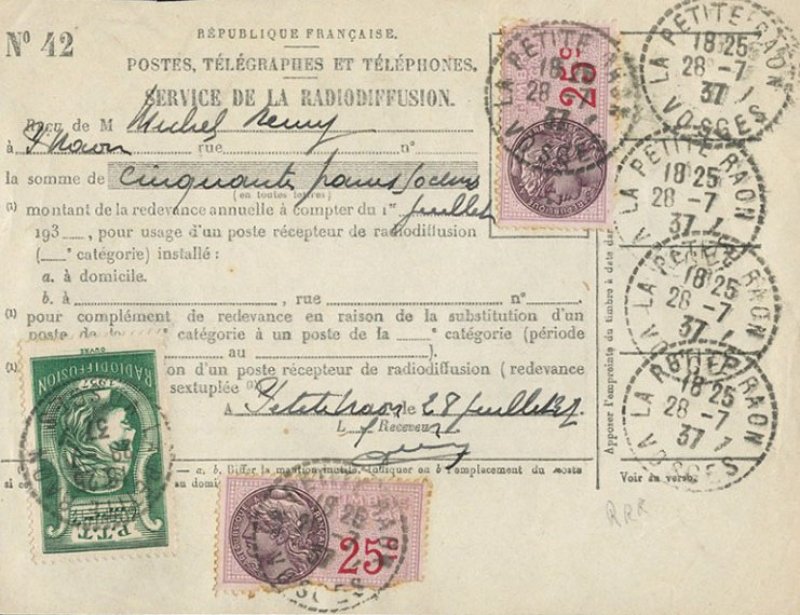 Nº 42
RÉPUBLIQUE FRANÇAISE.
POSTES, TÉLÉGRAPHES ET TÉLÉPHONES.
SERVICE DE LA RADIODIFFUSION.
Reçu de M Michel Remy
à P Raon rue nº
la somme de Cinquante francs
(en toutes lettres)
(1) montant de la redevance annuelle à compter du 1er juillet
193 , pour usage d'un poste récepteur de radiodiffusion
( e catégorie) installé :
a. à domicile.
b. à , rue nº
(1) pour complément de redevance en raison de la substitution d'un
poste de catégorie à un poste de la e catégorie (période
au ).
ion d'un poste récepteur de radiodiffusion (redevance
sextuplée
A Petite Raon le 28 juillet 37
L Receveur
a, b. Biffer la mention inutile. Indiquer au b l'emplacement du poste
si ce au domi
Apposer l'empreinte du timbre à date dar
Voir au verso.
RRR
25c
LA PETITE RAON
18 25
28 -7
37
VOSGES
LA PETITE RAON
18 25
28 -7
37
VOSGES
LA PETITE RAON
18 25
28 -7
37
LA PETITE RAON
18 25
28 -7
37
LA PETITE RAON
18 25
28 -7
37
VOSGES
RADIODIFFUSION
1937
P.T.T
25c